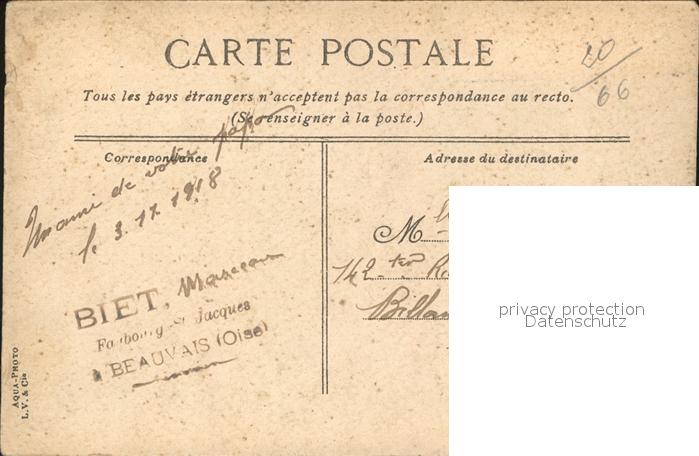 CARTE POSTALE
Tous les pays étrangers n'acceptent pas la correspondance au recto.
(Se renseigner à la poste.)
66
Correspondance
de votre papa
le 3. 11 1918
BIET, Marceau
Faubourg St Jacques
à BEAUVAIS (Oise)
Adresse du destinataire
M
142 ter R
Billan
AQUA-PHOTO
L.V. & Cie
privacy protection
Datenschutz